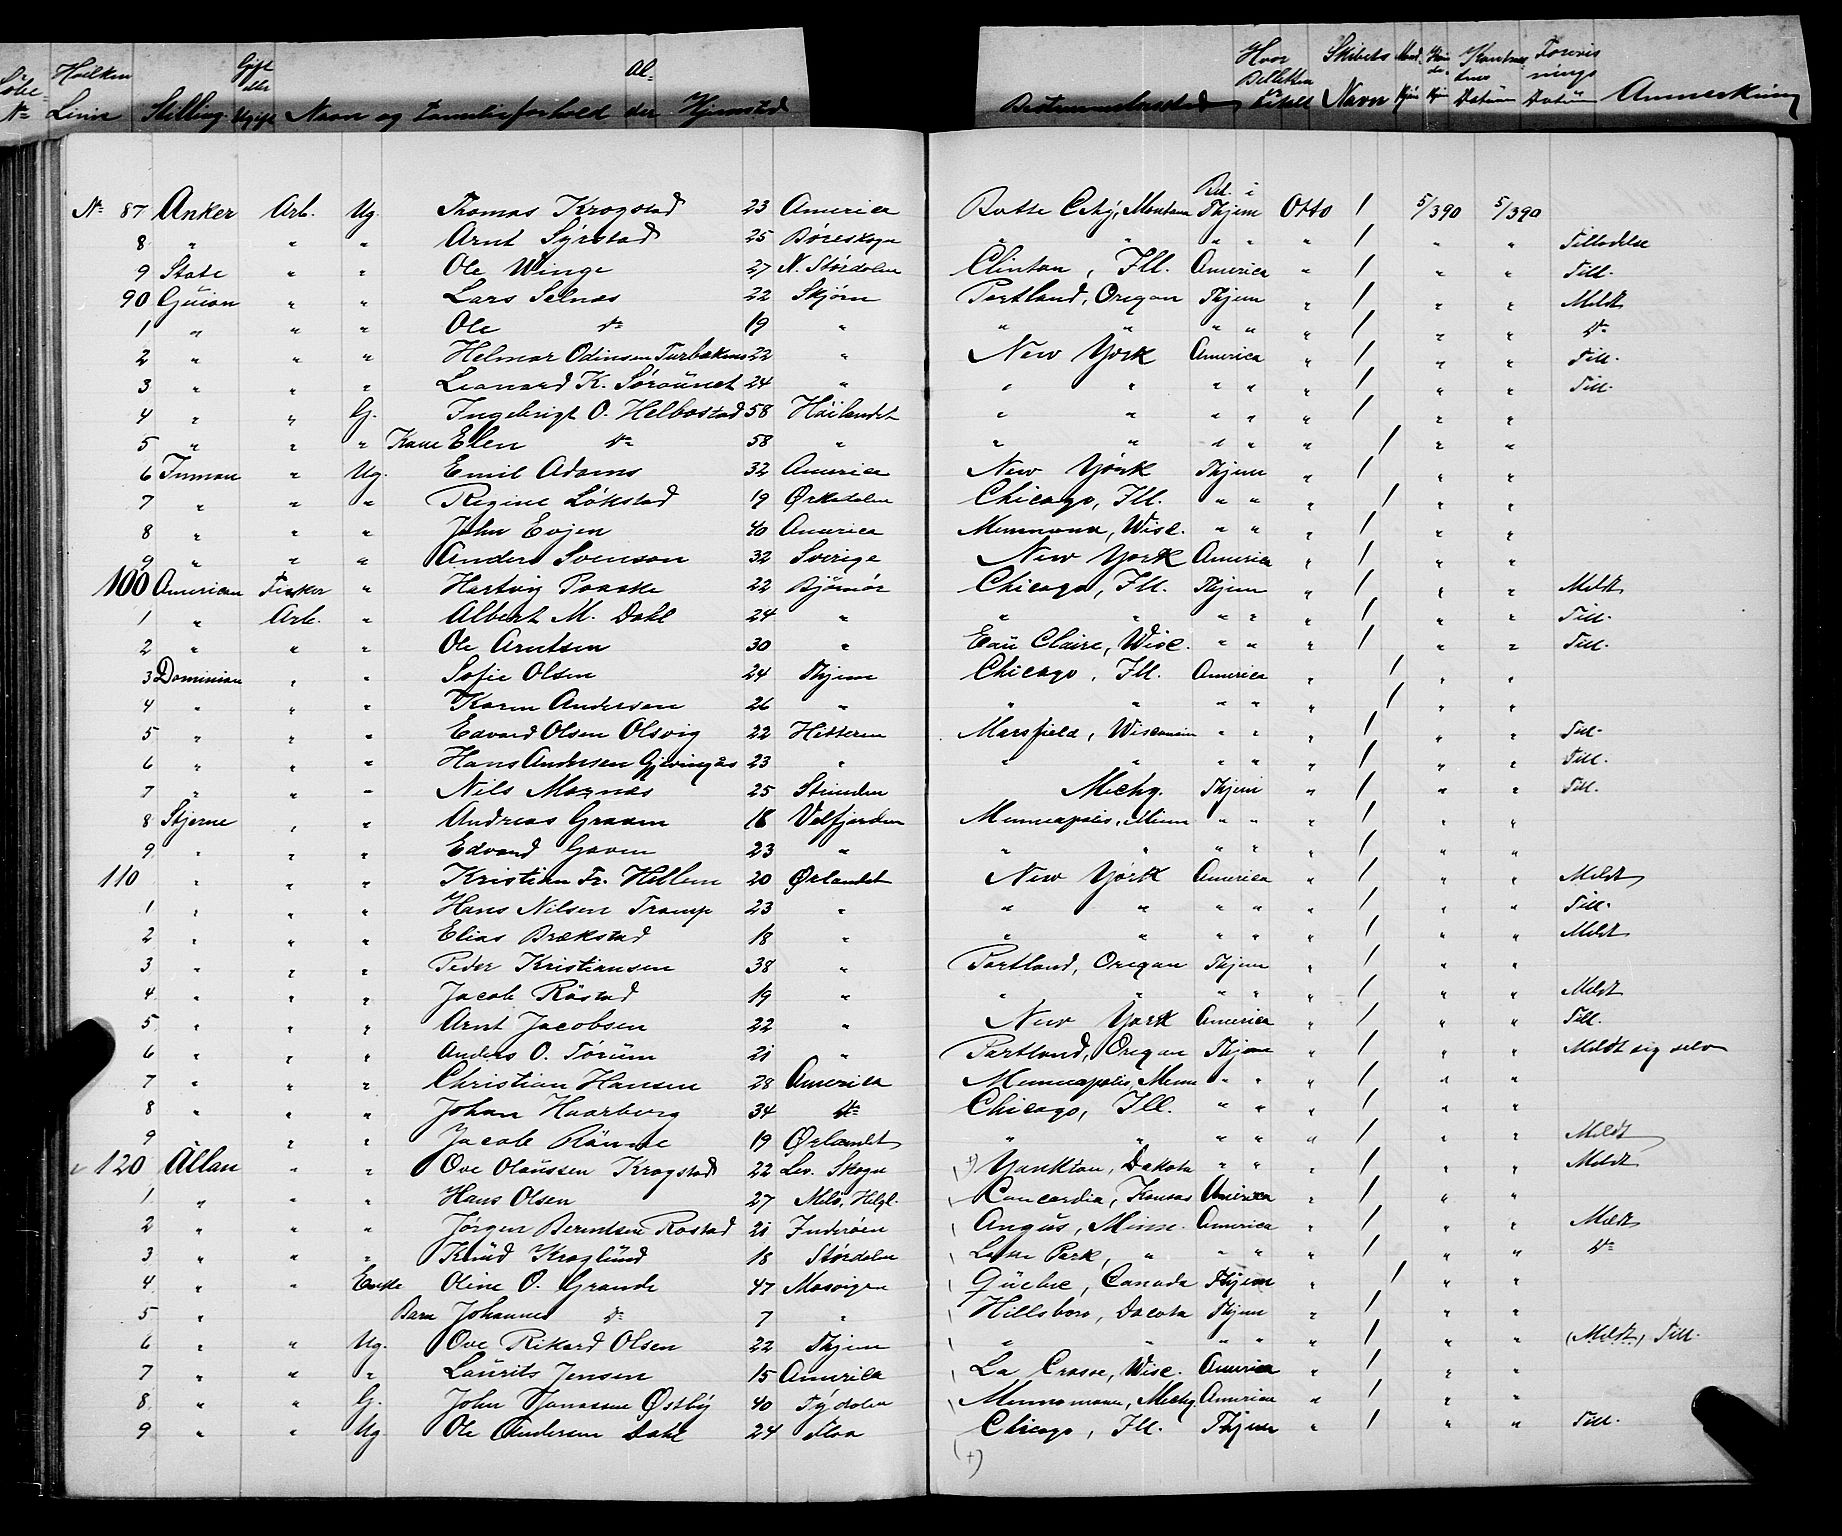 Löbe- N= Hvilken Linie Stilling Gift eller Ugift Navn og Familieforhold Al- der Hjemsted Bestemmelsessted Hvor Billetten er betalt Skibets Navn Mand- kjøn Kvin- de- kjøn Kontrac- tens Datum Forevis- nings Datum Anmerkning
N= 87 Anker Arb. Ug. Thomas Krogstad 23 America Butte City, Montana Bet. i Thjem Otto 1 5/390 5/390
8 " " " Arnt Sýrstad 25 Børeskogn " " " " " 1 " " Tilladelse
9 State " " Ole Winge 27 N. Størdalen Clinton, Ill. America " 1 " " Till.
90 Guion " " Lars Selnæs 22 Skjørn Portland, Oregon Thjem " 1 " " Meldt
1 " " " Ole d= 19 " " " " " " 1 " " d=
2 " " " Helmar Odinsen Turbakens 22 " New York America " 1 " " Till.
3 " " " Leonard K. Sørøunet 24 " " " " " " 1 " " Till.
4 " " G. Ingebrigt O. Helbostad 58 Høilandet " " " " " 1 " "
5 " " " Kone Elen d= 58 " " " " " " 1 " "
6 Inman " Ug. Emil Adams 32 America New York Thjem " 1 " "
7 " " " Regine Løkstad 19 Ørkedalen Chicago, Ill. " " " 1 " "
8 " " " John Evjen 40 America Menomona, Wisc. " " " 1 " "
9 " " " Anders Svenson 32 Sverige New York America " 1 " "
100 American Fisker " Hartvig Paaske 22 Bjørnør Chicago, Ill. Thjem " 1 " " Meldt
1 " Arb. " Albert M. Dahl 24 " " " " " " 1 " " Till.
2 " " " Ole Arntsen 30 " Eau Claire, Wisc. " " " 1 " " Till.
3 Dominion " " Sofie Olsen 24 Thjem Chicago, Ill. America " 1 " "
4 " " " Karen Andersen 26 " " " " " " 1 " "
5 " " " Edvard Olsen Olsvig 22 Hitteren Marsfield, Wisconsin " " " 1 " " Till.
6 " " " Hans Andersen Gjevingaas 23 " " " " " " 1 " " Till.
7 " " " Nils Moznæs 25 Strinden Michg. Thjem " 1 " " Till.
8 Stjerne " " Andreas Graven 18 Velfjorden Minneapolis, Minn " " " 1 " "
9 " " " Edvard Gaven 23 " " " " " " 1 " "
110 " " " Kristian Fr. Hellem 20 Ørlandet New York America " 1 " " Meldt
1 " " " Hans Nilsen Tramp 23 " " " " " " 1 " " Till.
2 " " " Elias Brækstad 18 " " " " " " 1 " " Meldt
3 " " " Peder Kristiansen 38 " Portland, Oregon Thjem " 1 " "
4 " " " Jacob Røstad 19 " " " " " " 1 " " Meldt
5 " " " Arnt Jacobsen 22 " New York America " 1 " " Till.
6 " " " Anders O. Tørum 21 " Portland, Oregon Thjem " 1 " " Meldt sig selv
7 " " " Christian Hansen 28 America Minneapolis, Minn " " " 1 " "
8 " " " Johan Haarberg 34 d= Chicago, Ill. " " " 1 " "
9 " " " Jacob Rønne 19 Ørlandet " " " " " 1 " " Meldt
120 Allan " " Ove Olaussen Krogstad 22 Lev. Skogn +) Yankton, Dakota " " " 1 " " Meldt
1 " " " Hans Olsen 27 Melø, Helgl. Concordia, Kansas America " 1 " "
2 " " " Jørgen Berntsen Rostad 21 Inderøen Angus, Minn. America " 1 " " Mældt
3 " " " Knud Kroglund 18 Størdalen Park, " " " " 1 " " d=
4 " " Enke Oline O. Grande 47 Mosvigen Quebec, Canada Thjem " 1 " "
5 " Barn Johannes d= 7 " Hillsboro, Dacota Thjem " 1 " "
6 " " Ug. Ove Rikard Olsen 22 Thjem " " " " " 1 " " (Meldt) Till.
7 " " " Laurits Jensen 15 America La Crosse, Wisc. America " 1 " "
8 " " G. John Jonassen Østby 40 Týdalen Menomonee, Michg America " 1 " "
9 " " Ug Ole Andersen Dahl 24 Flaa Chicago, Ill. Thjem " 1 " " Till.
(+)